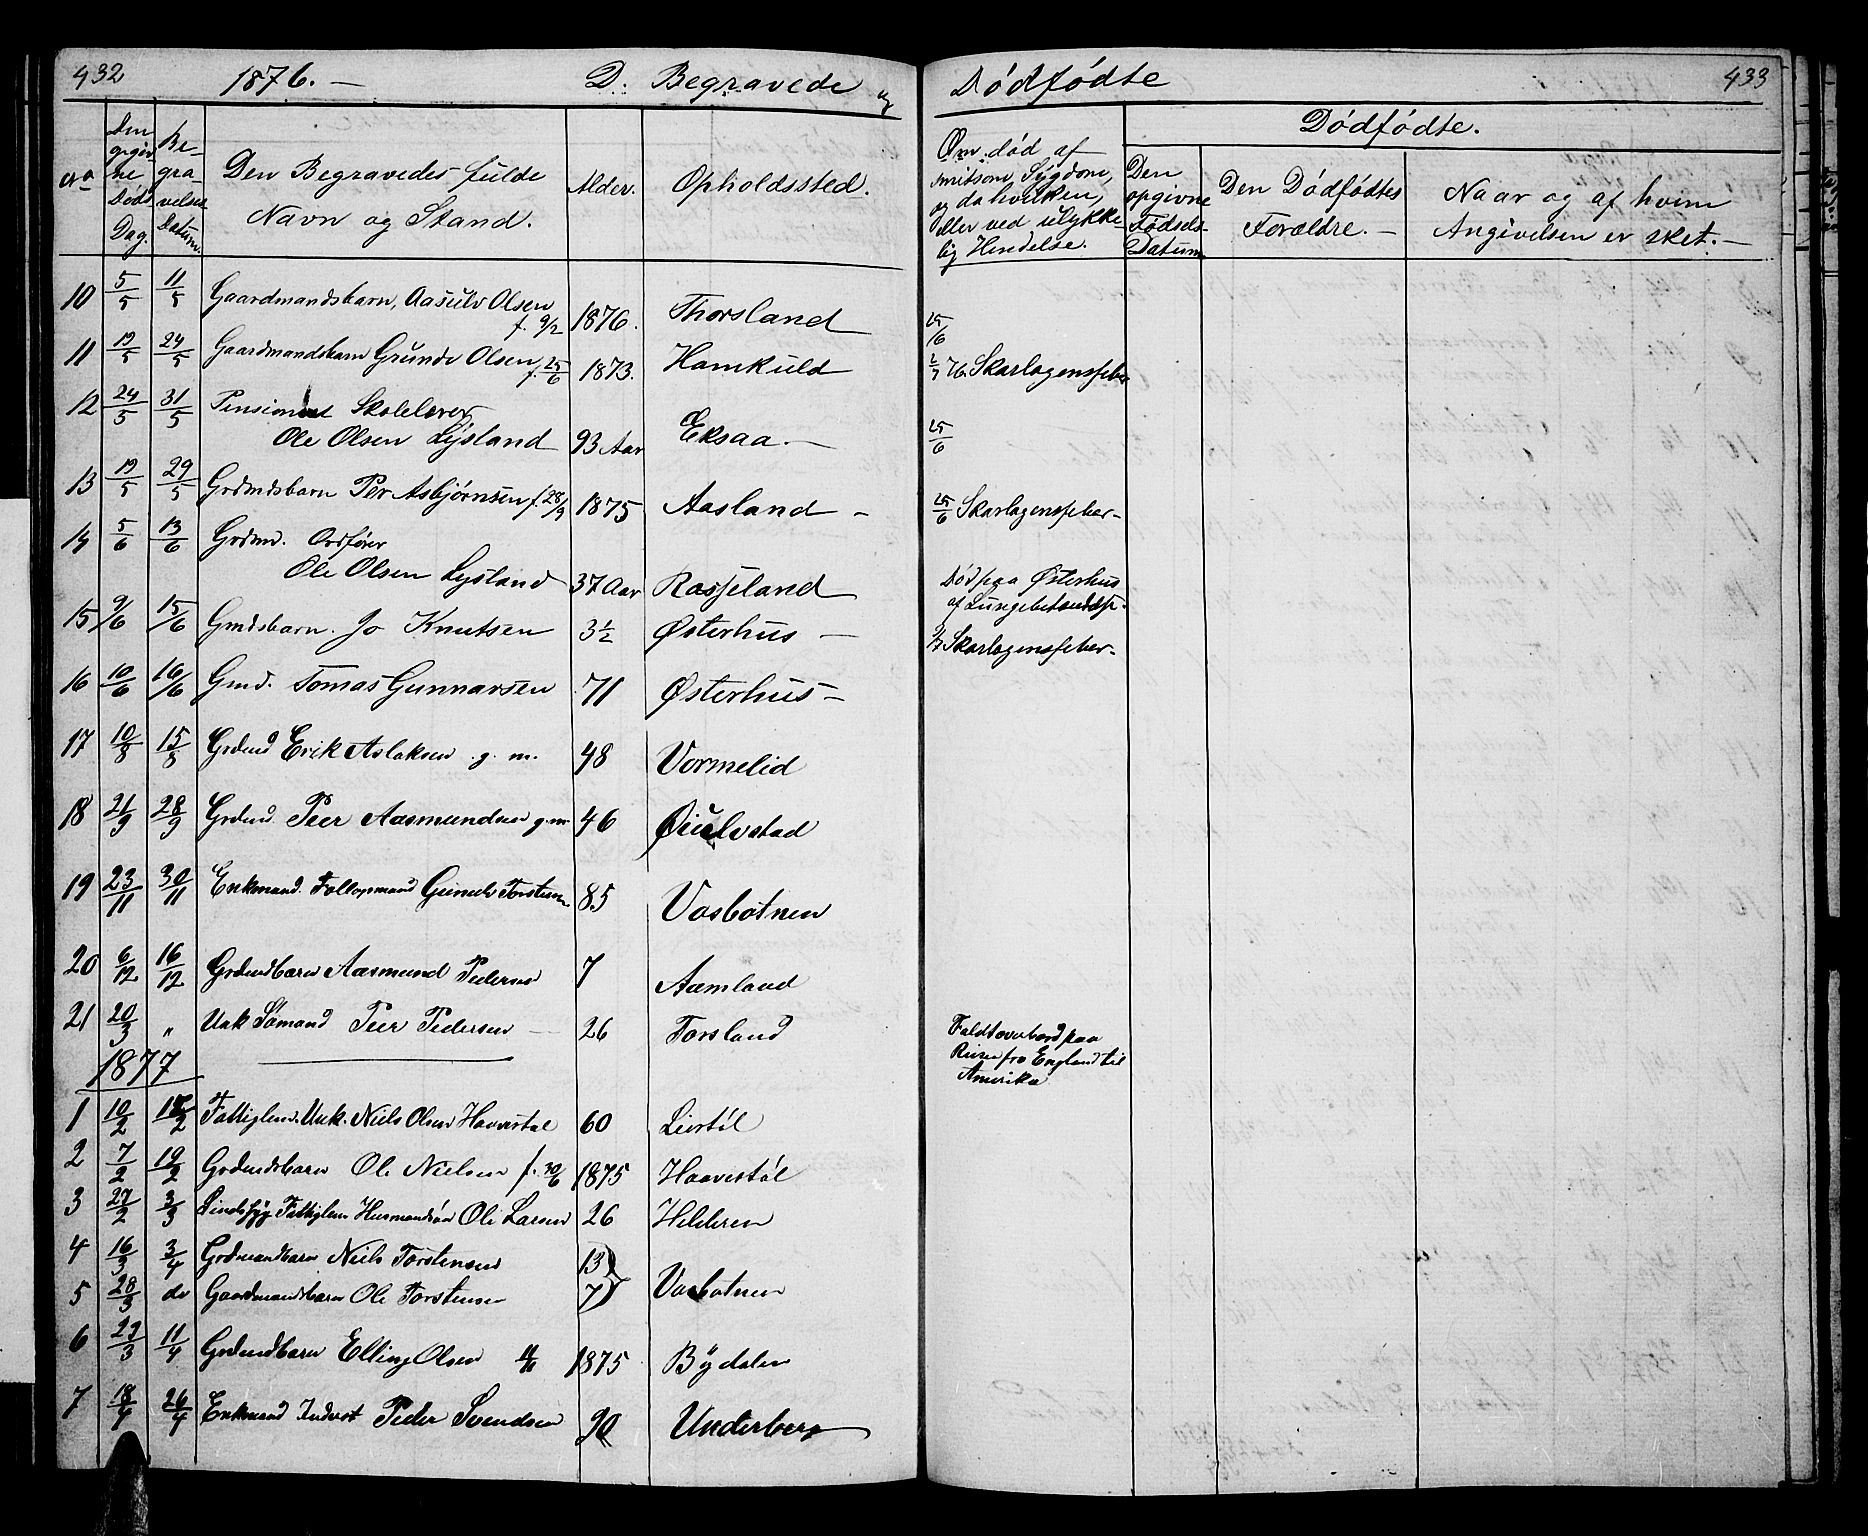 432
1876. —
D. Begravede og
Dødfødte
433
No
Den opgivne Døds Dag.
Begravelses Datum.
Den Begravedes fulde
Navn og Stand.
Alder.
Opholdssted.
Om død af
smitsom Sygdom,
og da hvilken,
eller ved ulykke-
lig Hendelse.
Dødfødte.
Den opgivne Fødsels Datum
Den Dødfødtes
Forældre. —
Naar og af hvem
Angivelsen er sket. —
10 5/5 11/5 Gaardmandsbarn, Aasulv Olsen
f. 9/2 1876. Thorsland
25/6
11 19/5 24/5 Gaardmandsbarn Gunde Olsen f. 25/6 1873. Homkuld
76. Skarlagensfeber
12 24/5 31/5 Pensioneret Skolelærer
Ole Olsen Lysland 93 Aar Eksaa. —
25/6
13 19/5 29/5 Grdmdsbarn Per Asbjørnsen f. 28/9 1875 Aasland —
25/6 Skarlagensfeber —
14 5/6 13/6 Grdmd. Ordfører
Ole Olsen Lysland 37 Aar Rosseland
Død paa Østerhus
af Lungebetændelse.
15 9/6 15/6 Gmdsbarn. Jo Knutsen 3 1/2 Østerhus —
Skarlagensfeber —
16 10/6 16/6 Gmd. Tomas Gunnarsen 71 Østerhus —
17 10/8 15/8 Grdmd Erik Aslaksen g. m. 48 Vormelid
18 21/9 28/9 Grdmd Peer Aasmundsen g. m. 46 Øiulvstad
19 23/11 30/11 Enkmand. Gunuls Torstensen 85 Vasbotnen
20 6/12 16/12 Grdmdbarn Aasmund Pedersen 7 Aamland
21 20/3 „ Unk Sømand Peer Pedersen — 26 Torsland
Faldt overbord paa
Reisen fra England til
Amerika
1877
1 10/2 /2 Fattiglem. Unk. Niels Olsen Haavestøl 60 Liestøl
2 7/2 19/2 Grdmdsbarn Ole Nielsen f. 30/6 1875 Haavestøl
3 27/2 3/3 Sindssyg Fattiglem Husmandsøn Ole Larsen 26 Hilderen
4 16/3 3/4 Grdmandbarn Niels Torstensen 13
5 28/3 do Gaardmandsbarn Ole Torstensen 7 Vasbotnen
6 29/3 11/4 Grdmdbarn Elling Olsen 1875 Bydalen
7 18/4 26/4 Enkmand Inderst Peder Svendsen 90 Underberg